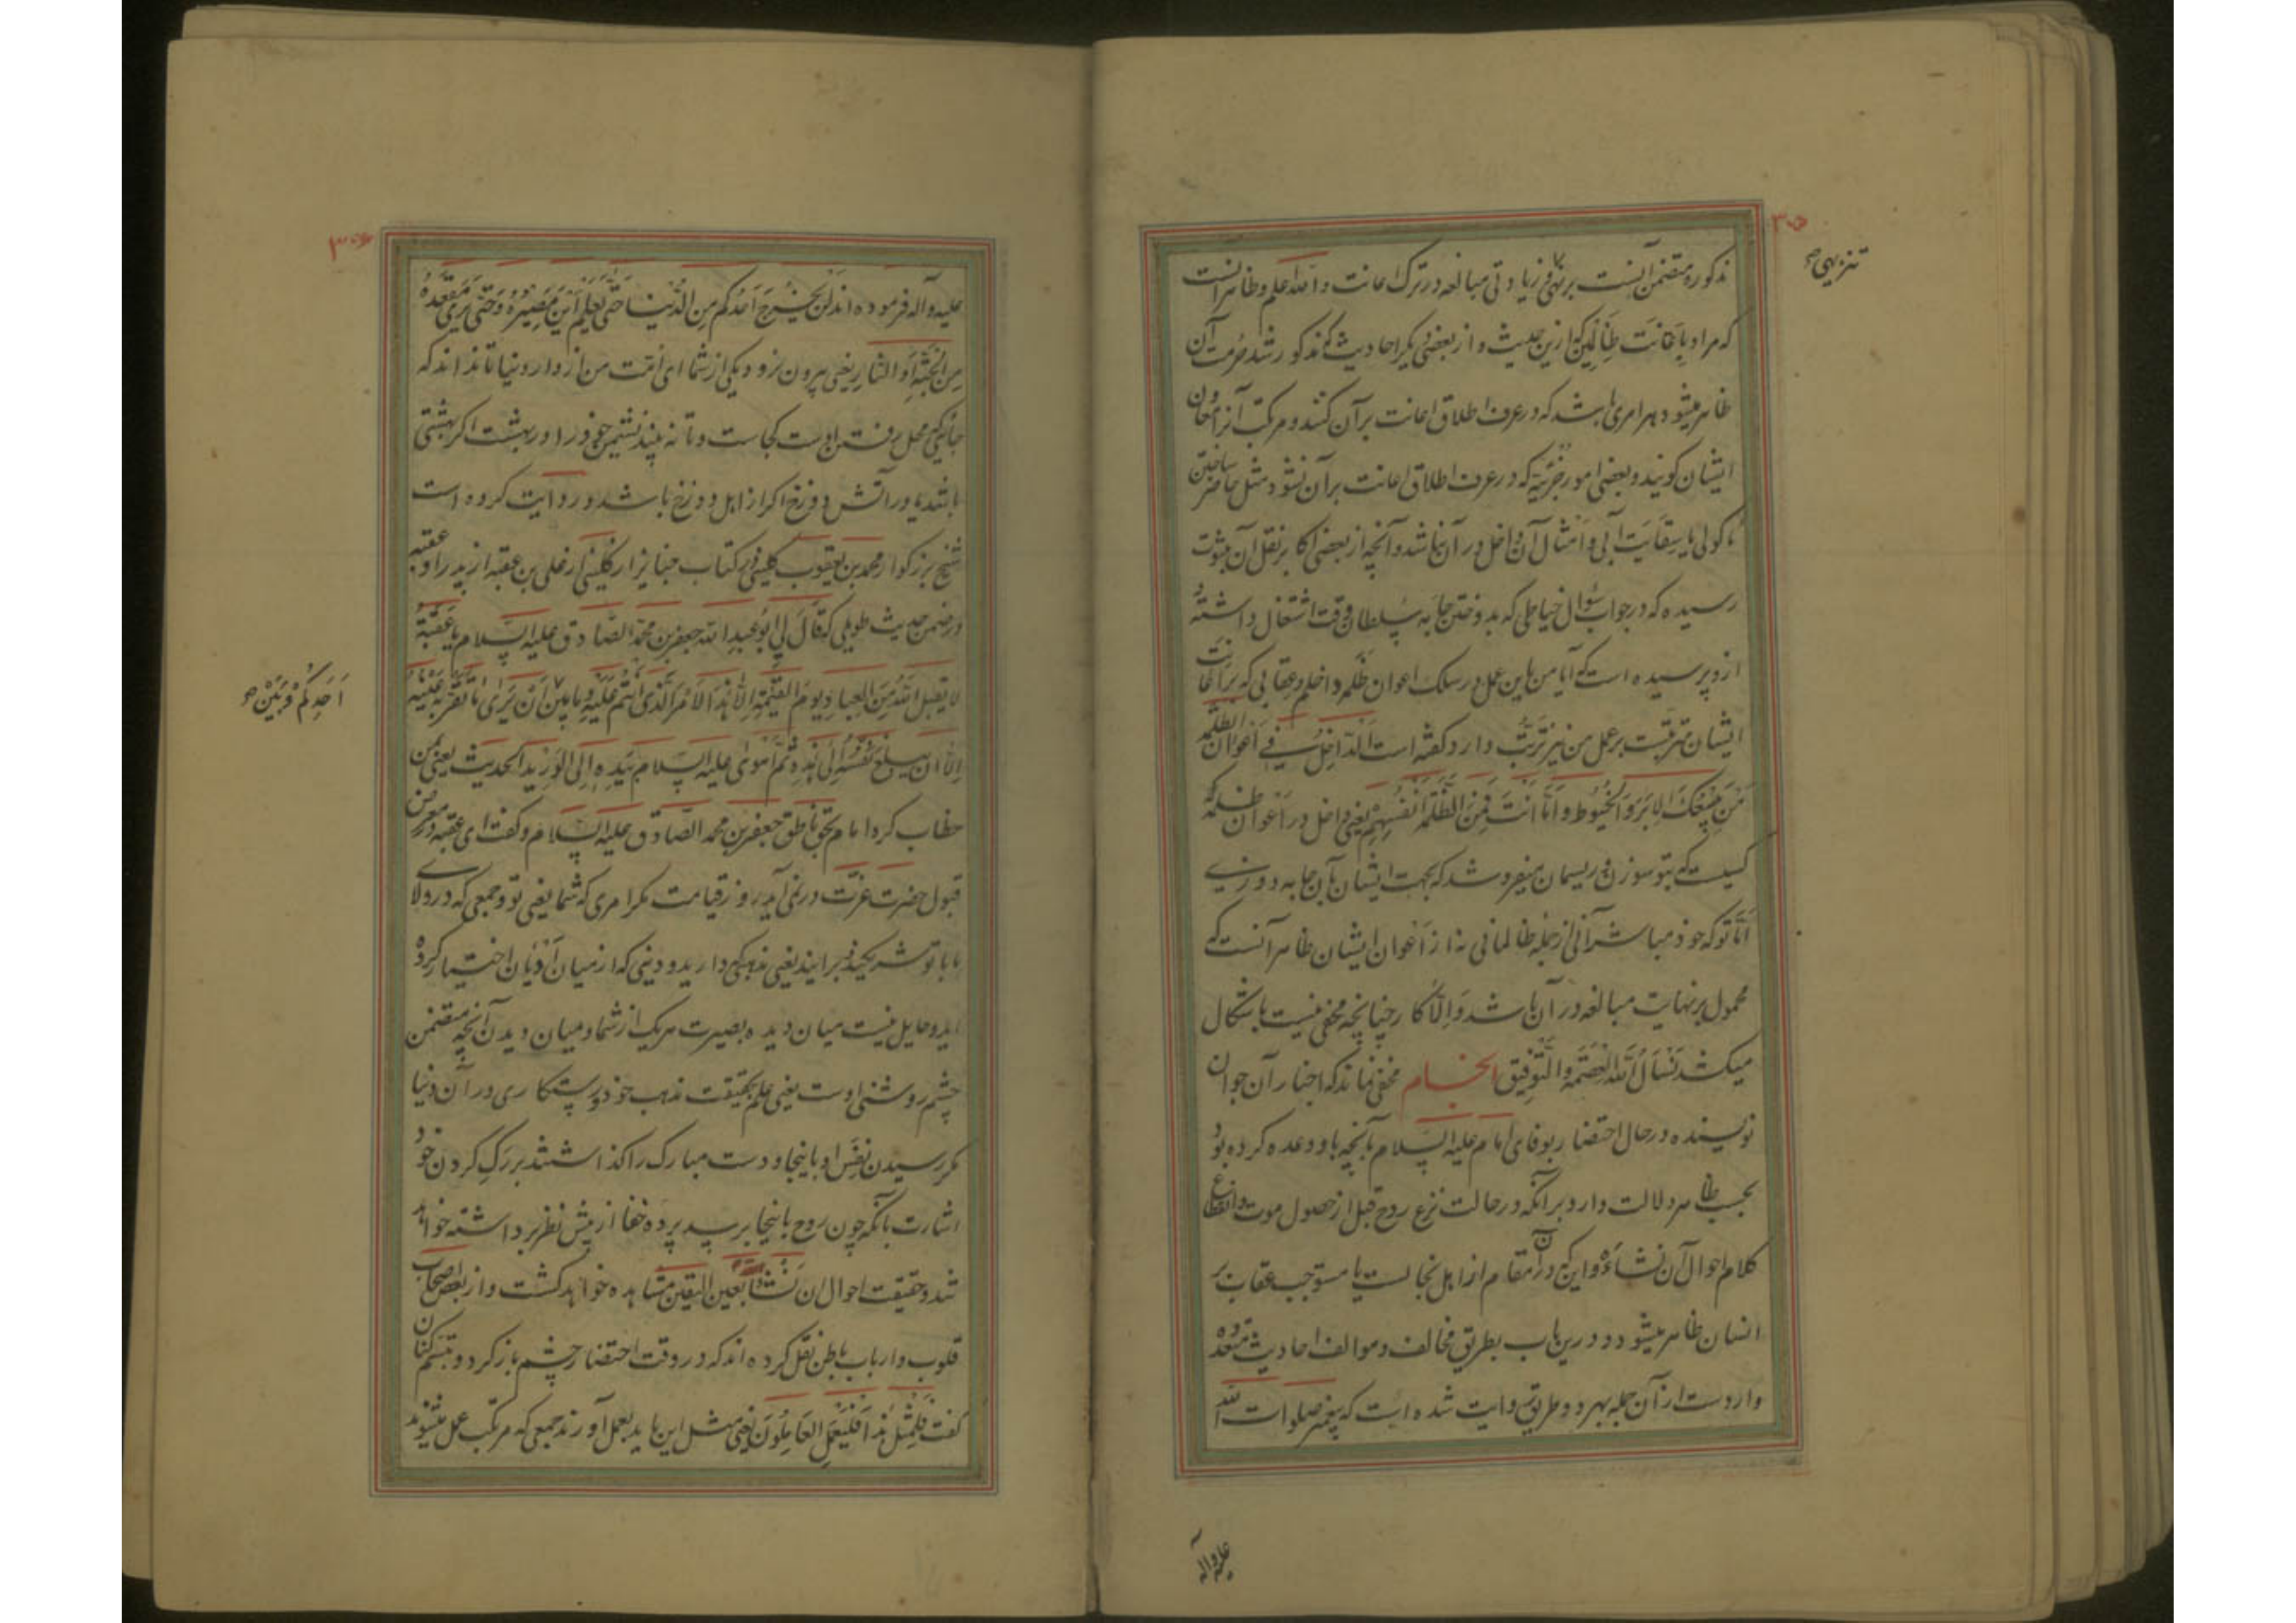 ۳۰۵
تنزیهی صح
مذکوره متضمن آنست بر نهی و زیادتی مبالغه در ترک اعانت و الله اعلم و ظاهر آنست
که مراد باعانت ظالمین که ازین حدیث و از بعضی دیگر احادیث که مذکور شد حرمت آن
ظاهر میشود هر امری باشد که در عرف اطلاق اعانت بر آن کنند و مرتکب آنرا اعوان
ایشان کویند و بعضی امور جزئیه که در عرف اطلاق اعانت بر آن نشود مثل حاضر ساختن
ماکولی یا سقایت آبی و امثال آن داخل در آن نباشد و آنچه از بعضی اکابر نقل آن بثبوت
رسیده که در جواب سؤال خیاطی که بدوختن جامه سلطان وقت اشتغال داشته
ازو پرسیده است که آیا من باین عمل در سلک اعوان ظلمه داخلم و عقابی که بر اعانت
ایشان مترتبست بر عمل من نیز ترتب دارد کفته است الداخل فی اعوان الظلمه
من یبیعک الابر و الخیوط و اما انت فمن الظلمه انفسهم یعنی داخل در اعوان ظلمه
کسیست که بتو سوزن و ریسمان میفروشد که بجهت ایشان بآن جامه دوزی
اما تو که خود مباشر آنی از جمله ظالمانی نه از اعوان ایشان ظاهر آنست که
محمول بر نهایت مبالغه در آن باشد و الا کار چنانچه مخفی نیست باشکال
میکشد نسأل الله العصمه و التوفیق الختام مخفی نماند که اخبار آن جوان
نویسنده در حال احتضار بوفای امام علیه السلام بآنچه باو وعده کرده بود
بحسب ظاهر دلالت دارد برآنکه در حالت نزع روح قبل از حصول موت و انقطاع
کلام احوال آن نشأة و این که در آن مقام از اهل نجالست یا مستوجب عقاب بر
انسان ظاهر میشود و درین باب بطریق مخالف و موالف احادیث متعدده
واردست از آن جمله بهر دو طریق روایت شده است که پیغمبر صلوات الله
علیه و آله
۳۰۶
علیه و آله فرموده اند لن یخرج احدکم من الدنیا حتی یعلم این مصیره و حتی یری مقعده
من الجنه او النار یعنی بیرون نرود یکی از شما ای امت من از دار دنیا تا نداند که
جائیکه محل رفتن اوست کجاست و تا نه بیند نشیمن خود را در بهشت اکر بهشتی
باشد یا در آتش دوزخ اکر از اهل دوزخ باشد و روایت کرده است
شیخ بزرکوار محمد بن یعقوب کلینی در کتاب جنایز از کلینی از علی بن عقبه از پدر او عقبه
در ضمن حدیث طویلی که قال لی ابو عبد الله جعفر بن محمد الصادق علیه السلام یا عقبه
لا یقبل الله من العباد یوم القیمه الا هذا الامر الذی انتم علیه و ما بین ان یری ما تقر به عینیه
احدکم و بین صح
الا ان یبلغ نفسه الی هذه ثم اهوی علیه السلام بیده الی الورید الحدیث یعنی بمن
خطاب کرد امام بحق ناطق جعفر بن محمد الصادق علیه السلام و کفت ای عقبه در معرض
قبول حضرت عزت در نمی آید روز قیامت مکر امری که شما یعنی تو و جمعی که در ولای
ما با تو شریکند برانید یعنی مذهبی که دارید و دینی که از میان ادیان اختیار کرده
اید و حایل نیست میان دیده بصیرت هر یک از شما و میان دیدن آنچه متضمن
چشم روشنی اوست یعنی علم بحقیقت مذهب خود و رستکاری در آن دنیا
مکر رسیدن نفس او باینجا و دست مبارک را کذاشتند بر رک کردن خود
اشارت بآنکه چون روح باینجا برسد پرده خفا از پیش نظر برداشته خواهد
شد و حقیقت احوال ان نشأة بعین الیقین مشاهده خواهد کشت و از بعض اصحاب
قلوب و ارباب باطن نقل کرده اند که در وقت احتضار چشم باز کرد و تبسم کنان
کفت لمثل هذا فلیعمل العاملون یعنی مثل این باید بعمل آورند جمعی که مرتکب عمل میشوند